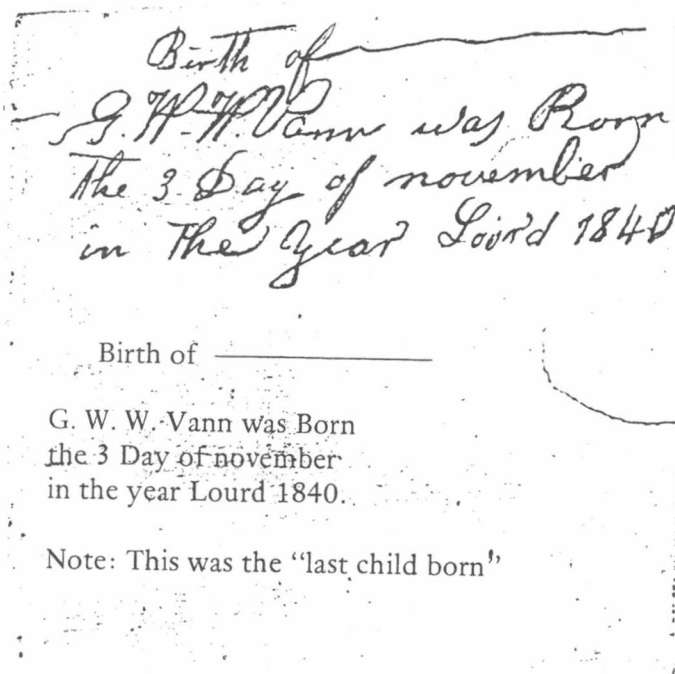 Birth of
G. W. W. Vann was Born
the 3 Day of november
in the year Lourd 1840
Birth of
G. W. W. Vann was Born
the 3 Day of november
in the year Lourd 1840.
Note: This was the “last child born”